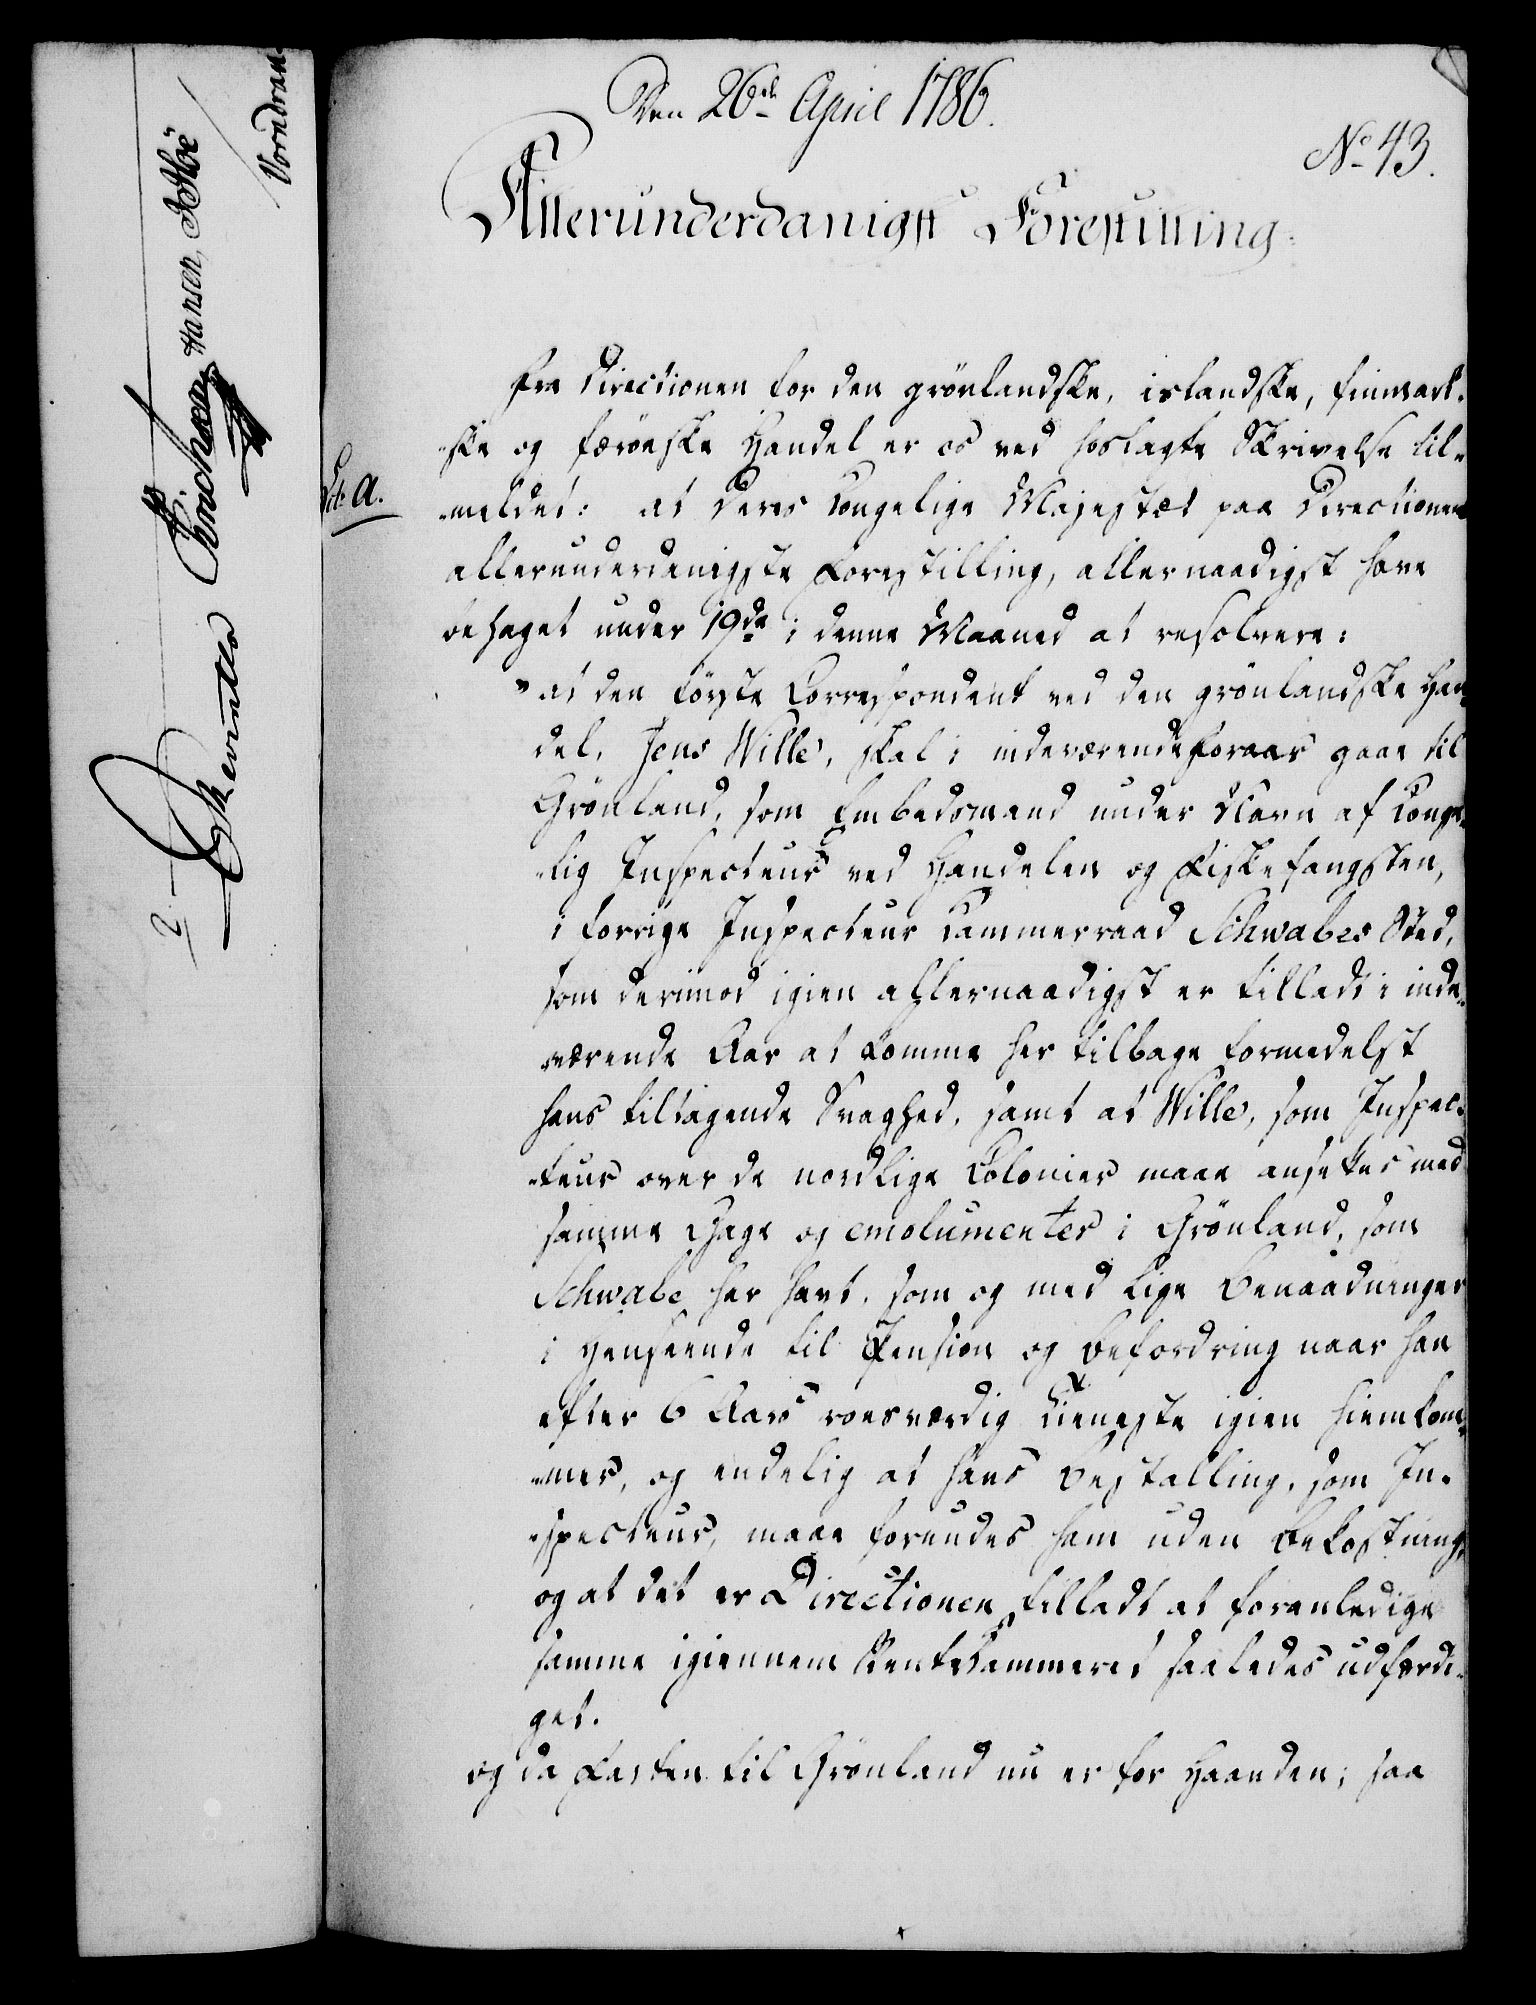 Den 26de April 1786.
No 43.
Allerunderdanigst Forestilling.
Fra Directionen for den grönlandske, islandske, finmark-
-ske og færöeske Handel er os ved hoslagte Skrivelse til-
Lit. A.
-meldet: at Deres Kongelige Majestæt paa Directionens
allerunderdanigste Forestilling, allernaadigst have
behaget under 19de i denne Maaned at resolvere:
"at den förste Correspondent ved den grönlandske Han-
del, Jens Wille, skal i indeværende Foraar gaae til
Grönland, som Embedsmand under Navn af Konge-
-lig Inspecteur ved Handelen og Fiskefangsten,
i forrige Inspecteur Kammerraad Schwabes Sted,
som derimod igien allernaadigst er tilladt i inde-
-værende Aar at komme her tilbage formedelst
hans tiltagende Svaghed, samt at Wille, som Inspec-
-teur over de nordlige Colonier maae ansettes med
samme Gage og emolumenter i Grönland, som
Schwabe har havt, som og med lige Benaadninger
i Henseende til Pension og Befordring naar han
efter 6 Aars roesværdig Tieneste igien hiemkom-
-mer, og endelig at hans Bestalling, som In-
-specteur, maae forundes ham uden Bekostning,
og at det er Directionen tilladt at foranledige
samme igiennem Rentekammeret saaledes udfærdi-
get.
og da Farten til Grönland nu er for Haanden; saa
Hansen